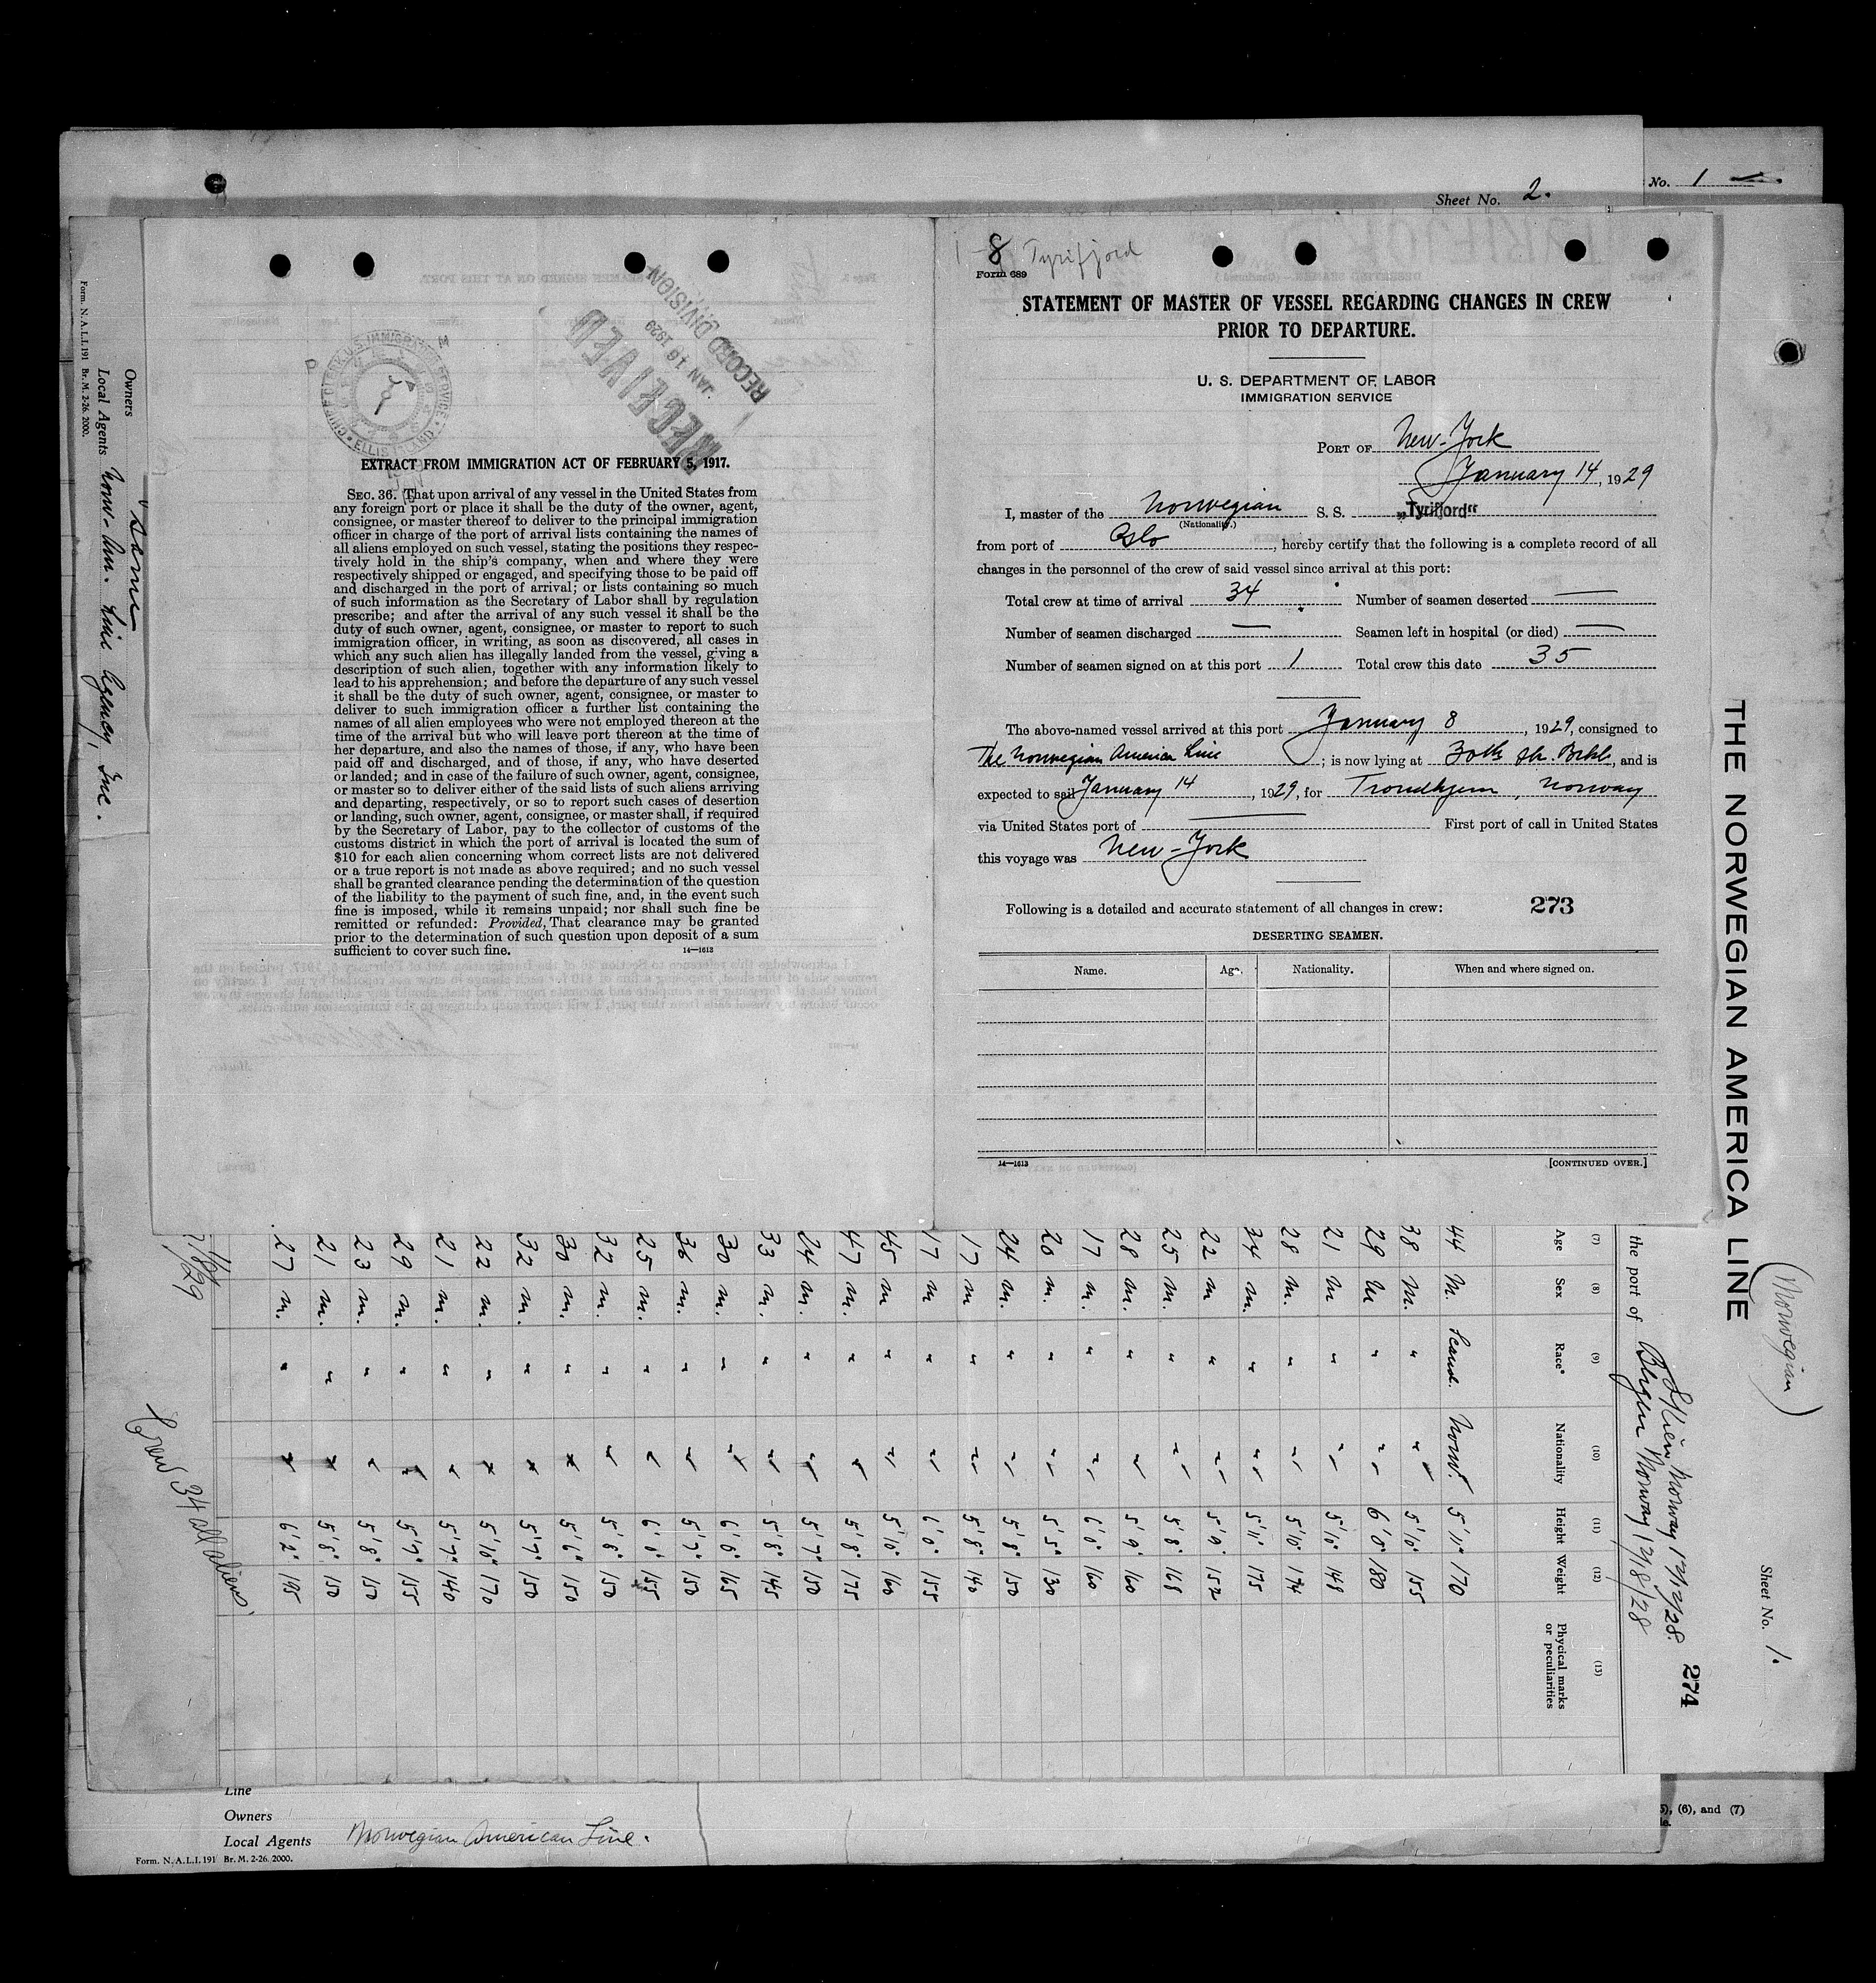 No. 1
Sheet No. 2.
8 Tyrifjord
Form 689
STATEMENT OF MASTER OF VESSEL REGARDING CHANGES IN CREW
PRIOR TO DEPARTURE.
U. S. DEPARTMENT OF LABOR
IMMIGRATION SERVICE
PORT OF New-York
January 14, 1929
I, master of the Norwegian S. S. „Tyrifjord“
(Nationality.)
from port of Oslo, hereby certify that the following is a complete record of all
changes in the personnel of the crew of said vessel since arrival at this port:
Total crew at time of arrival 34 Number of seamen deserted —
Number of seamen discharged — Seamen left in hospital (or died) —
Number of seamen signed on at this port 1 Total crew this date 35
The above-named vessel arrived at this port January 8, 1929, consigned to
The Norwegian America Line; is now lying at 30th Str. Bckl., and is
expected to sail January 14, 1929, for Trondhjem, Norway
via United States port of — First port of call in United States
this voyage was New-York
Following is a detailed and accurate statement of all changes in crew: 273
DESERTING SEAMEN.
Name. Age. Nationality. When and where signed on.
14—1613
[CONTINUED OVER.]
RECEIVED
JAN 19 1929
RECORD DIVISION
CHIEF CLERK, U.S. IMMIGRATION SERVICE
ELLIS ISLAND
EXTRACT FROM IMMIGRATION ACT OF FEBRUARY 5, 1917.
SEC. 36. That upon arrival of any vessel in the United States from
any foreign port or place it shall be the duty of the owner, agent,
consignee, or master thereof to deliver to the principal immigration
officer in charge of the port of arrival lists containing the names of
all aliens employed on such vessel, stating the positions they respec-
tively hold in the ship's company, when and where they were
respectively shipped or engaged, and specifying those to be paid off
and discharged in the port of arrival; or lists containing so much
of such information as the Secretary of Labor shall by regulation
prescribe; and after the arrival of any such vessel it shall be the
duty of such owner, agent, consignee, or master to report to such
immigration officer, in writing, as soon as discovered, all cases in
which any such alien has illegally landed from the vessel, giving a
description of such alien, together with any information likely to
lead to his apprehension; and before the departure of any such vessel
it shall be the duty of such owner, agent, consignee, or master to
deliver to such immigration officer a further list containing the
names of all alien employees who were not employed thereon at the
time of the arrival but who will leave port thereon at the time of
her departure, and also the names of those, if any, who have been
paid off and discharged, and of those, if any, who have deserted
or landed; and in case of the failure of such owner, agent, consignee,
or master so to deliver either of the said lists of such aliens arriving
and departing, respectively, or so to report such cases of desertion
or landing, such owner, agent, consignee, or master shall, if required
by the Secretary of Labor, pay to the collector of customs of the
customs district in which the port of arrival is located the sum of
$10 for each alien concerning whom correct lists are not delivered
or a true report is not made as above required; and no such vessel
shall be granted clearance pending the determination of the question
of the liability to the payment of such fine, and, in the event such
fine is imposed, while it remains unpaid; nor shall such fine be
remitted or refunded: Provided, That clearance may be granted
prior to the determination of such question upon deposit of a sum
sufficient to cover such fine.
14—1613
THE NORWEGIAN AMERICA LINE
(Norwegian)
Sheet No. 1.
274
Skien Norway 12/12/28.
the port of Bergen Norway 12/18/28
(7) (8) (9) (10) (11) (12) (13)
Age Sex Race* Nationality Height Weight Physical marks
or peculiarities
44 M. Scand. Norw. 5'11" 170
38 M. " " 5'10" 155
29 M " " 6'0" 180
21 M " " 5'10" 148
28 M. " " 5'10" 174
34 m. " " 5'11" 175
22 m " " 5'9" 152
25 m. " " 5'8" 168
28 m. " " 5'9" 160
17 m. " " 6'0" 160
20 m. " " 5'5" 130
24 m. " " 5'8" 150
17 m " " 5'8" 140
17 m " " 6'0" 155
45 m " " 5'10" 160
47 m. " " 5'8" 175
24 m. " " 5'7" 150
33 m. " " 5'8" 145
30 m. " " 6'0" 165
36 m. " " 5'7" 150
25 m. " " 6'0" 155
32 m. " " 5'8" 150
30 m. " " 5'6" 150
32 m. " " 5'7" 150
22 m. " " 5'10" 170
21 m. " " 5'7" 140
29 m. " " 5'7" 155
23 m. " " 5'8" 150
21 m. " " 5'8" 150
27 m. " " 6'2" 195
1/8/29
Crew 34 all aliens.
Owners "same"
Local Agents Norw-Am. Line Agency, Inc.
Form. N. A. L. I. 191 Br. M. 2-26. 2000.
Line
Owners
Local Agents Norwegian American Line.
Form. N. A. L. I. 191 Br. M. 2-26. 2000.
(6), and (7)